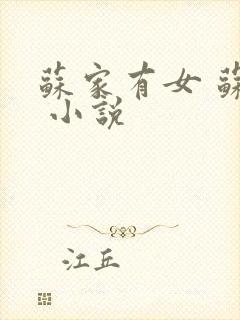 蘇家有女 蘇
小說
江丘